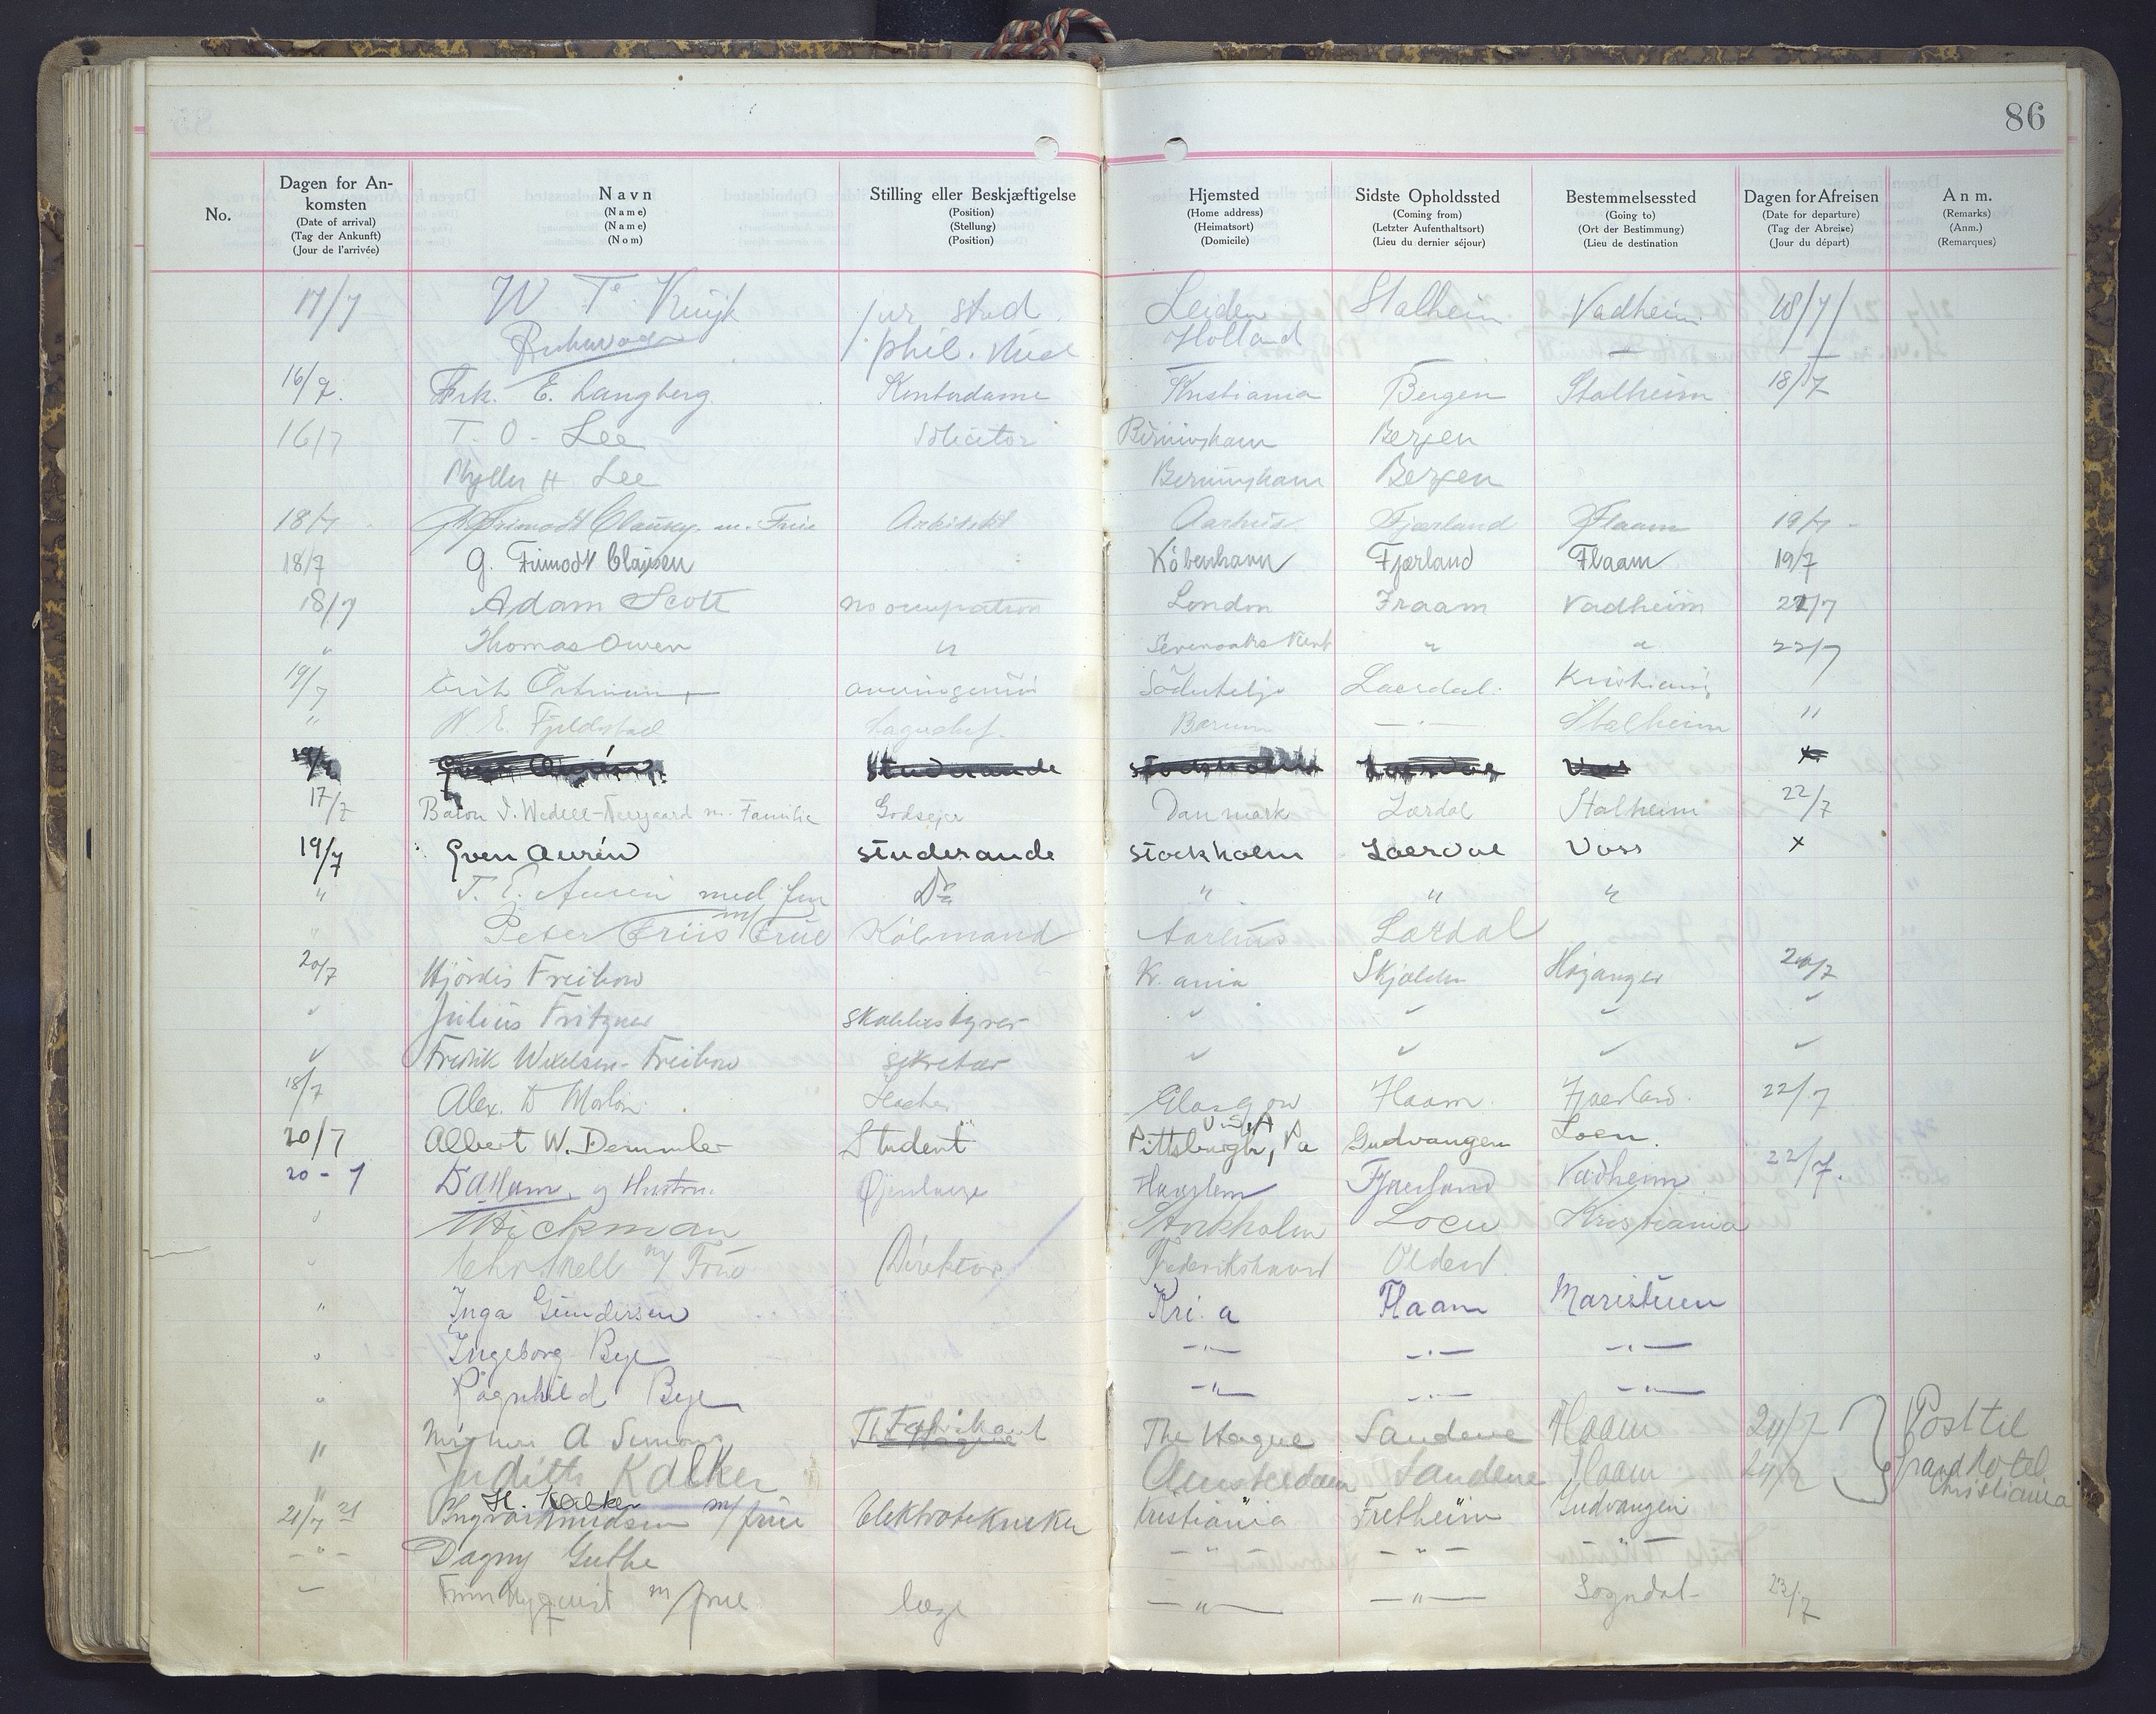 86
No.
Dagen for An-
komsten
(Date of arrival)
(Tag der Ankunft)
(Jour de l'arrivée)
Navn
(Name)
(Name)
(Nom)
Stilling eller Beskjæftigelse
(Position)
(Stellung)
(Position)
Hjemsted
(Home address)
(Heimatsort)
(Domicile)
Sidste Opholdssted
(Coming from)
(Letzter Aufenthaltsort)
(Lieu du dernier séjour)
Bestemmelsessted
(Going to)
(Ort der Bestimmung)
(Lieu de destination
Dagen for Afreisen
(Date for departure)
(Tag der Abreise)
(Jour du départ)
Anm.
(Remarks)
(Anm.)
(Remarques)
17/7 W Te Kuijk jur stud. Leiden Stalheim Vadheim 18/7
phil. Holland
16/7. Frk. E. Langberg Kontordame Kristiania Bergen Stalheim 18/7
16/7 T. O. Lee Solicitor Birmingham Bergen
H Lee Birmingham Bergen
18/7 Frimodt Clausen m. Frue Arkitekt Aarhus Fjærland Flaam 19/7
18/7 G. Frimodt Clausen København Fjærland Flaam 19/7
18/7 Adam Scott no occupation London Fraam Vadheim 22/7
" Thomas Owen " Sevenoaks Kent " " 22/7
19/7 Erik Södertelje Laerdal. Kristiania "
" N. E. Fjeldstad Bærum -"- Stalheim "
19/7 studerande Stockholm Laerdal Voss x
17/7 Baron Wedell-Neergaard m. Familie Godsejer Danmark Lærdal Stalheim 22/7
19/7 Sven Aurén studerande Stockholm Laerdal Voss x
" T. E. Aurén med fru Dr " " "
" Peter Friis m/ Frue Købmand Aarhus Lærdal
20/7 Hjördis Freihow Kr. ania Skjolden Højanger 20/7
" Julius Fritzner skolebestyrer " " " "
" Fredrik Wexelsen-Freihow sekretær " " " "
18/7 Alex. Teacher Glasgow Flaam Fjaerland. 22/7
U.S.A
20/7 Albert W. Demmler Student Pittsburgh, Pa Gudvangen Loen.
20-7 og Hustru. Øjenlæge Haarlem Fjaerland Vadheim 22/7.
" Hickman Stockholm Loen Kristiania
" m/ Frue Direktør Frederikshavn Olden
" Inga Gundersen Kri. a Flaam Maristuen
" Ingeborg Bye -"- -"- -"-
" Ragnhild Bye -"- -"- -"-
" A Simons Fabrikant The Hague Sandene Flaam 24/7 Post til
Judith Kalker Amsterdam Sandene Flaam 24/7 Grand Hotel
" H. Kalker Christiania
21/7 21 Knudsen m/ frue Elektrotekniker Kristiania Fretheim Gudvangen
-"- Dagny Guthe -"- -"- -"-
Finn Nyquist m/ frue læge -"- -"- Sogndal- 23/7